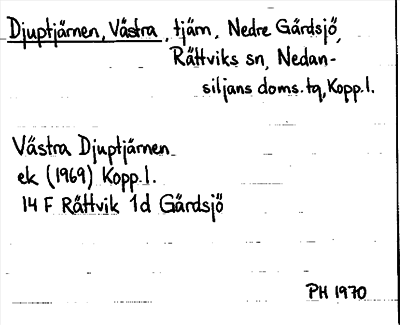 Djuptjärnen, Västra, tjärn, Nedre Gärdsjö,
Rättviks sn, Nedan-
siljans doms. tq, Kopp.l.
Västra Djuptjärnen
ek (1969) Kopp.l.
14 F Rättvik 1d Gärdsjö
PH 1970